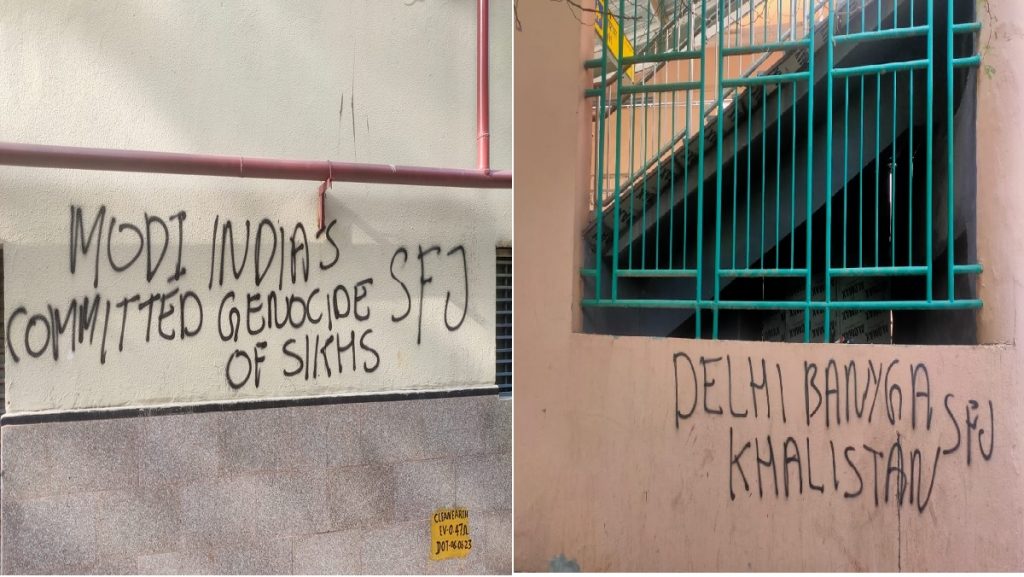 MODI INDIA'S
COMMITTED GENOCIDE SFJ
OF SIKHS
CLEANEARTH
DELHI BANYGA
KHALISTAN SFJ